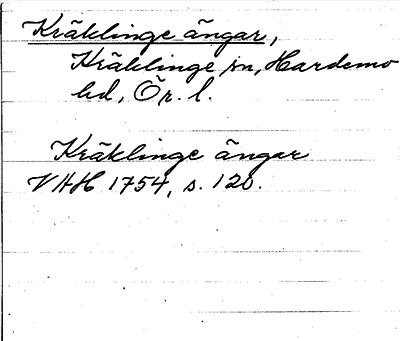 Kräklinge ängar,
Kräklinge sn, Hardemo
hd, Ör. l.
Kräklinge ängar
VAH 1754, s. 120.